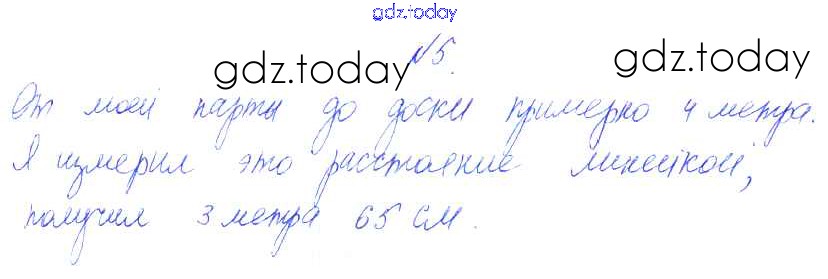 gdz.today
№5.
gdz.today gdz.today
От моей парты до доски примерно 4 метра.
Я измерил это расстояние линейкой,
получил 3 метра 65 см.